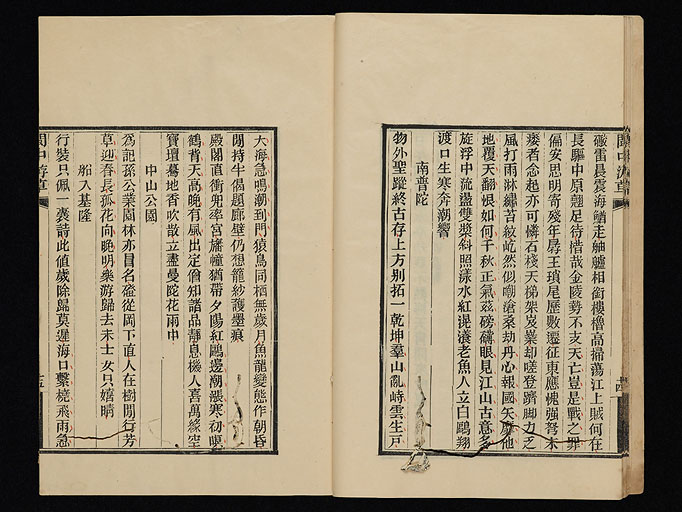 閩中游草
礮雷晨震海鰌走舳艫相銜樓櫓高掃蕩江上賊何在
長驅中原翹足待惜哉金陵勢不支天亡豈是戰之罪
偏安思明寄殘年辱王瑣尾歷數遷征東應愧強弩末
痿者念起亦可憐石棧天梯架岌業却嗟登躋脚力乏
風打雨淋繡苔紋屹然似嘲滄桑劫丹心報國矢靡他
地覆天翻恨如何千秋正氣茲磅礴眼見江山古意多
旋浮中流盪雙槳斜照漾水紅滉瀁老魚人立白鷗翔
渡口生寒夯潮響
南普陀
物外聖蹤終古存上方别拓一乾坤羣山亂峙雲生戸
十四
大海急鳴潮到門猿鳥同栖無歲月魚龍變態作朝昏
閒持牛偈題廊壁仍想籠紗護墨痕
殿閣直衝兜率宮旛幢猶帶夕陽紅鷗邊潮漲寒初哽
鶴背天高晚有風出定僧知諸品靜息機人喜萬緣空
寶壇驀地香吹散立盡曼陀花雨中
中山公園
為記孫公業園林亦冒名盎從岡下直人在樹間行芳
草迎春長孤花向晚明樂游歸去未士女只嬉晴
船入基隆
行裝只佩一囊詩此値歲除歸莫遲海口繫橈飛雨急
閩中游草
十五